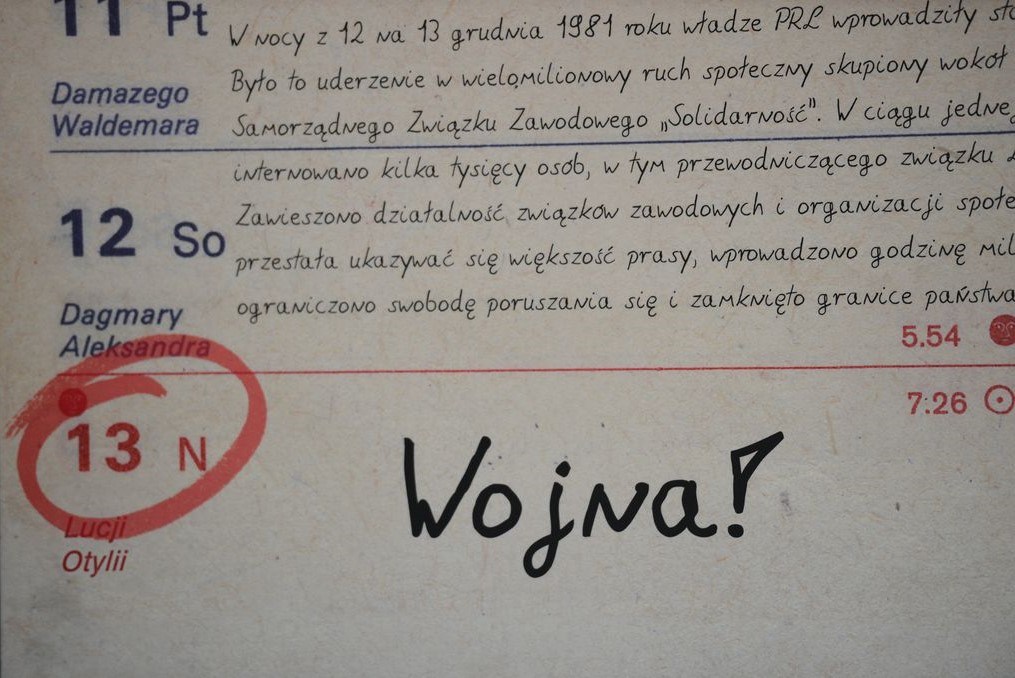 11 Pt
W nocy z 12 na 13 grudnia 1981 roku władze PRL wprowadziły
Było to uderzenie w wielomilionowy ruch społeczny skupiony wokół
Damazego
Waldemara
Samorządnego Związku Zawodowego „Solidarność". W ciągu
internowano kilka tysięcy osób, w tym przewodniczącego związku
12 So
Zawieszono działalność związków zawodowych i organizacji
przestała ukazywać się większość prasy, wprowadzono godzinę
ograniczono swobodę poruszania się i zamknięto granice
Dagmary
Aleksandra
5.54
7:26
13 N
Wojna!
Lucji
Otylii